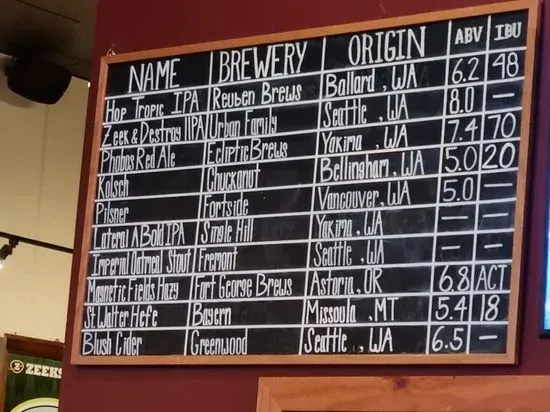 NAME BREWERY ORIGIN ABV IBU
Hop Tropic IPA Reuben Brews Ballard, WA 6.2 48
Zeek & Destroy IIPA Urban Family Seattle, WA 8.0 —
Phobos Red Ale Ecliptic Brews Yakima, WA 7.4 70
Kolsch Chuckanut Bellingham, WA 5.0 20
Pilsner Fortside Vancouver, WA 5.0 —
Lateral A Bold IPA Single Hill Yakima, WA — —
Imperial Oatmeal Stout Fremont Seattle, WA — —
Magnetic Fields Hazy Fort George Brews Astoria, OR 6.8 ACT
St. Walter Hefe Bayern Missoula, MT 5.4 18
Blush Cider Greenwood Seattle, WA 6.5 —
ZEEKS